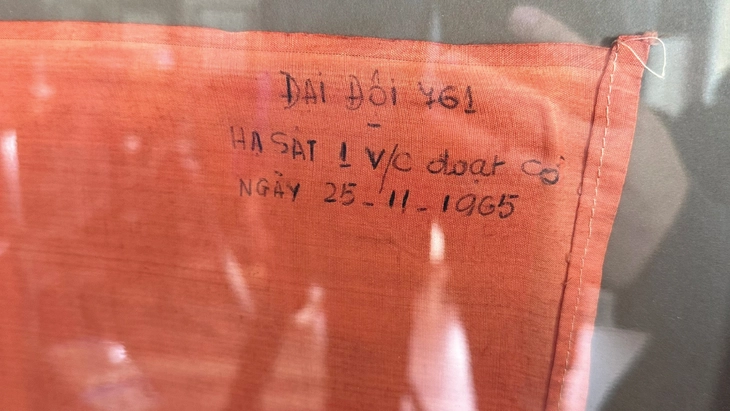 ĐAI ĐỘI 761
HẠ SÁT 1 V/C đoạt cờ
NGÀY 25-11-1965